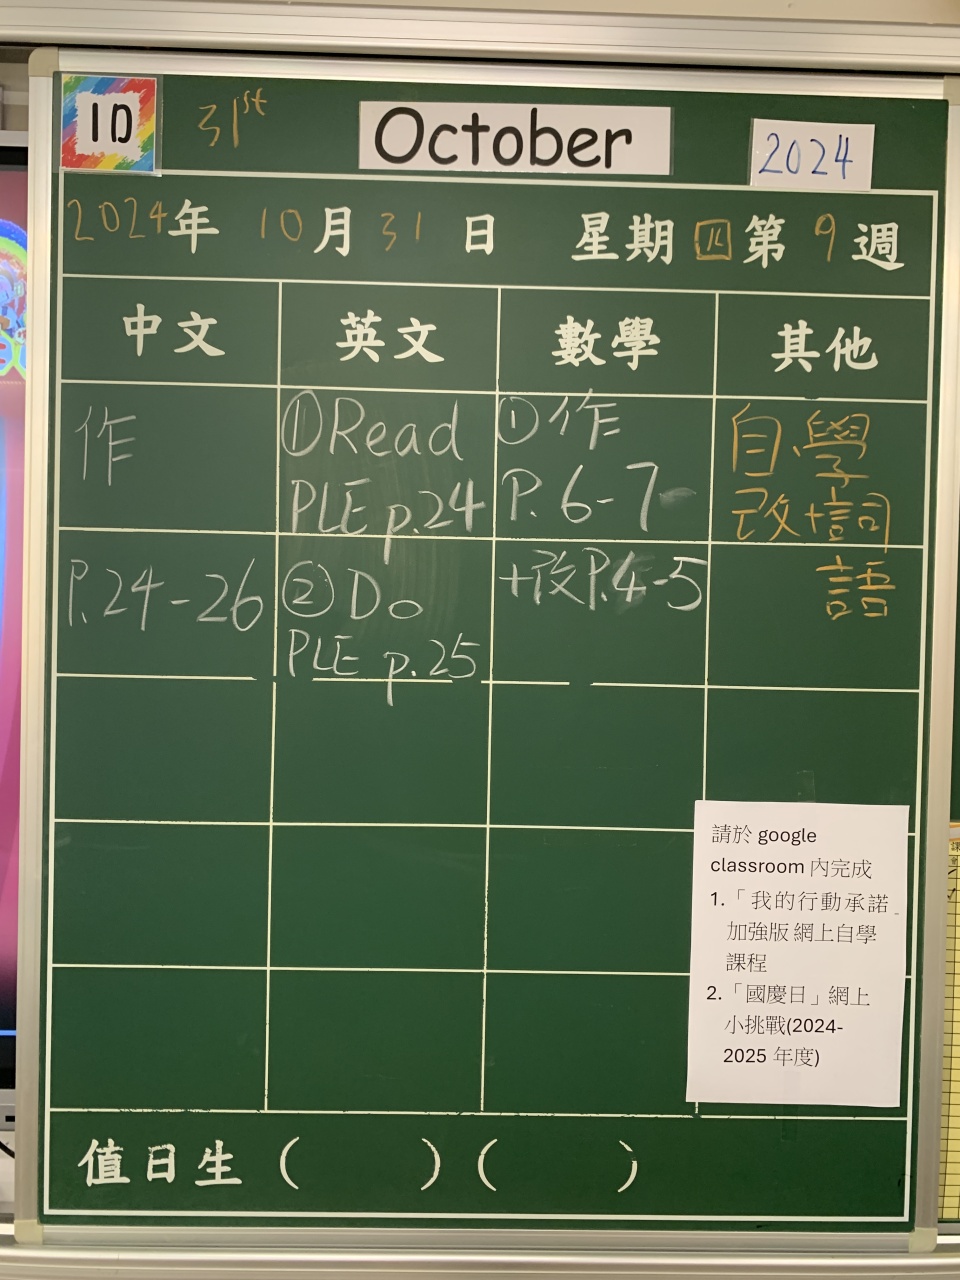 1D
31st
October
2024
2024年 10月31日 星期四第9週
中文 英文 數學 其他
作
P.24-26
①Read
PLE p.24
②Do
PLE p.25
①作
P.6-7
+改P.4-5
自學
改+詞
語
請於 google
classroom 內完成
1.「我的行動承諾
加強版 網上自學
課程
2.「國慶日」網上
小挑戰(2024-
2025 年度)
值日生 (    ) (    )